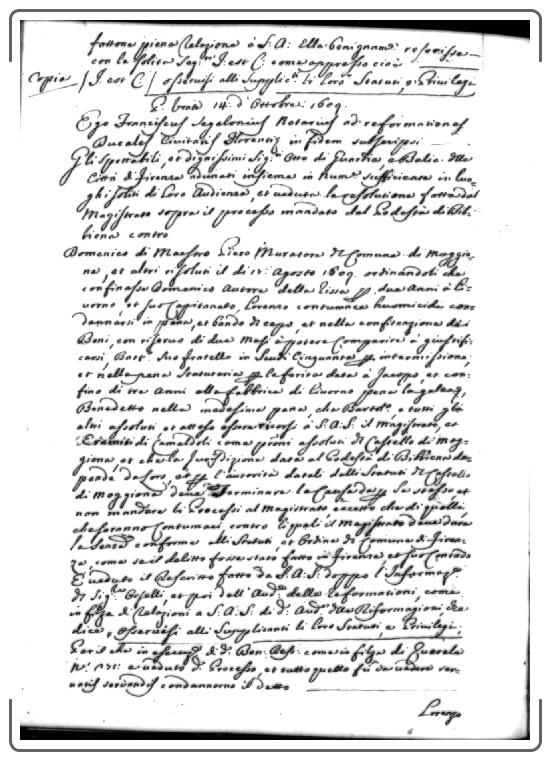 fattone piena relazione à S: A: Ella benignam.e rescrisse
con le solite Seg.re J. est C. come appresso cioè
Copia J. est C. osservisi alli Supplic.ti li loro Statuti, e Privilegi
14: d'Ottobre: 1609.
Ego Franciscus Segalonius Notarius ad reformationes
Ducales Civitatis Florentiæ in fidem subscripsi
Gli Spettabili, et dignissimi Sig.ri Otto di Guardia, e Balia della
Città di Firenze adunati insieme in num.o sufficiente in luo-
ghi soliti di loro Audienza, et veduta la resolutione fatta dal
Magistrato sopra il processo mandato dal Podestà di Bib-
biena contro
Domenico di Maestro Piero Muratore del Comune di Moggio-
na, et altri risoluti il dì 12: Agosto 1609. ordinandoli che
confinasse Domenico Autore della rissa p. due Anni à Li-
vorno, et suo Capitanato, Lorenzo contumace homicida con-
dannarsi in pena, et bando di capo, et nella confiscazione dei
Beni, con riservo di due Mesi à potere comparire à giustifi-
carsi, Bart.o suo fratello in Scudi Cinquanta p. intermissione,
et nella pena Statutaria p. la ferita data à Jacopo, et con-
fino di tre Anni alla fabbrica di Livorno pena la galea,
Benedetto nella medesima pena, che Bartol.o e tutti gli
altri assoluti et atteso essere ricorsi à S. A. S. il Magistrato, et
Eremiti di Camaldoli come proni assoluti di Castello di Mog-
giona et che la Jurisdizione data al Podestà di Bibbiena de-
pende da loro, et p. l'autorità datali dalli Statuti di Castello
di Moggiona deve terminare le Cause da p. se stesso, et
non mandare li Processi al Magistrato eccetto che di quelli,
che saranno Contumaci, contro li quali il Magistrato deve dare
la Senza conforme alli Statuti, et Ordini di Comune di Firen-
ze, come se il delitto fosse stato fatto in Firenze et suo Contado
E veduto il Rescritto fatto da S. A: S: doppo l'Informaz.e
di Sig.re Oselli, et poi dell'Aud.re delle Reformationi, come
in filza di Relazioni a S. A. S. di d.o Aud.re delle Riformagioni, che
dice, Osservisi alli Supplicanti li loro Statuti, e Privilegi,
come in filza di Querele
N.o 171: e veduto d.o Processo, et tutto quello fù da vedere ser-
vatis servandis condannorno il detto
Lorenzo